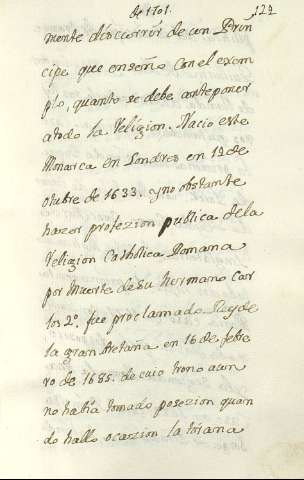 de 1701.
122
mente discorrir de un Prin
cipe que enseño con el exem
plo, quanto se debe anteponer
a todo la Religion. Nacio este
Monarca en Londres en 12 de
otubre de 1633. y no obstante
hazer profezion publica de la
Religion Catholica Romana
por Muerte de su hermano Car
los 2º. fue proclamado Rey de
la gran Bretaña en 16 de febre
ro de 1685. de cuio trono aun
no hauia tomado posezion quan
do hallo ocazion la tirana